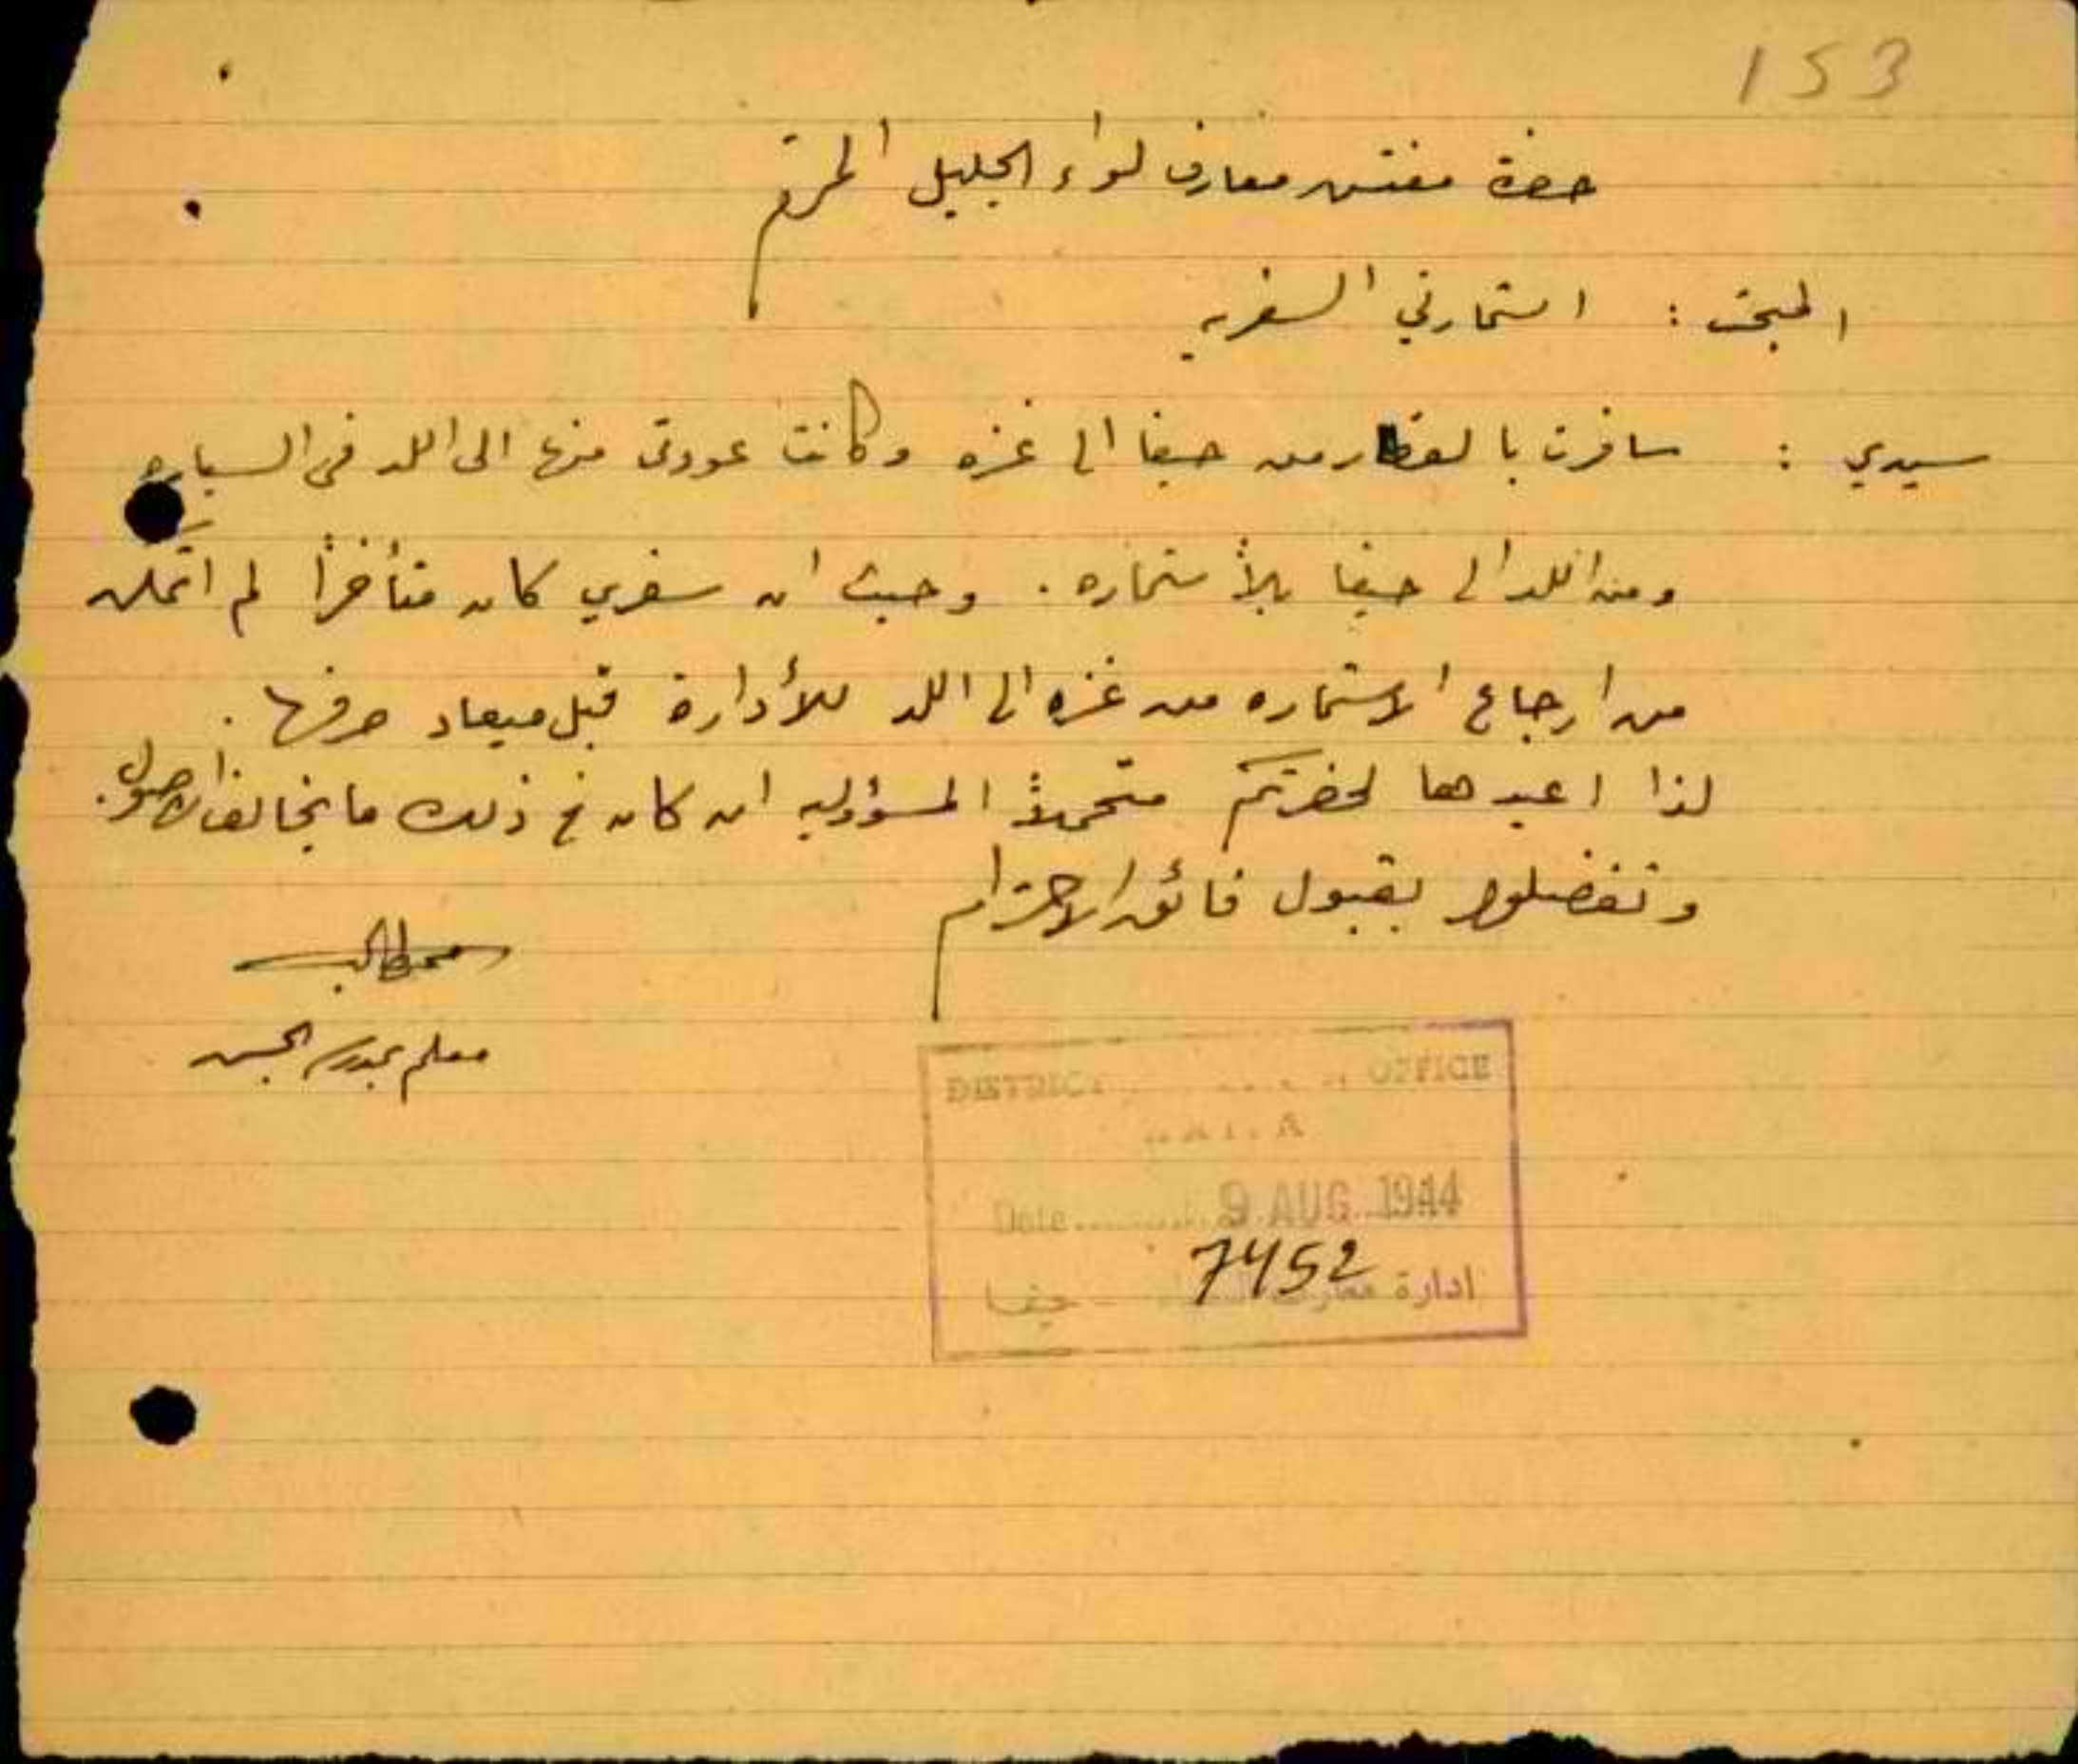 153
حضرة مفتش معارف لواء الجليل المحترم
المبحث : استمارتي السفريه
سيدي : سافرت بالقطار من حيفا الى غزه وكانت عودتي منها الى اللد في السياره
ومن اللد الى حيفا بالأستماره . وحيث ان سفري كان متأخراً لم اتمكن
من ارجاع الاستماره من غزه الى اللد للأدارة قبل ميعاد صرفها .
لذا اعيدها لحضرتكم متحملاً المسؤوليه ان كان في ذلك ما يخالف الاصول .
وتفضلوا بقبول فائق الاحترام
معلم بمدرسة
DISTRICT OFFICE
Date 9 AUG 1944
7452
ادارة معارف حيفا